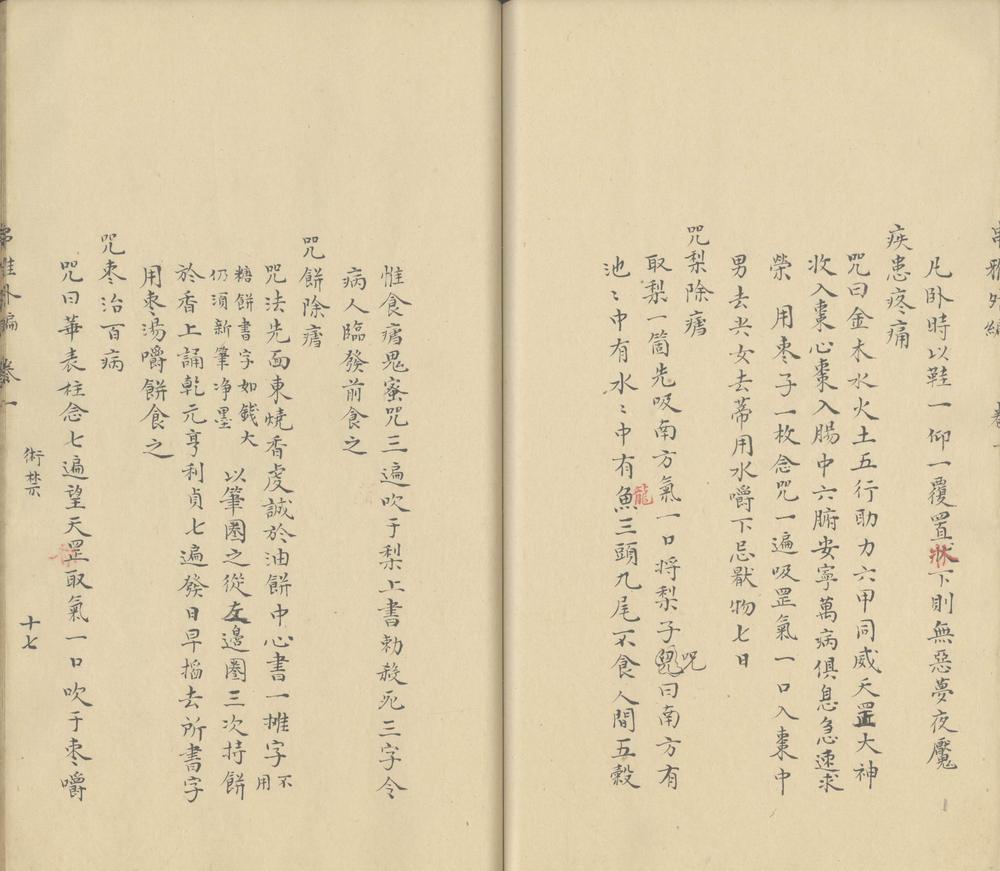 串雅外編 卷一
凡卧時以鞋一仰一覆置牀下則無惡夢夜魘
疾患疼痛
咒曰金木水火土五行助力六甲同威天罡大神
收入棗心棗入腸中六腑安寧萬病俱息急速求
榮 用枣子一枚念咒一遍吸罡氣一口入棗中
男去尖女去蒂用水嚼下忌厭物七日
咒梨除瘧
取梨一箇先吸南方氣一口將梨子咒曰南方有
池〻中有水〻中有魚龍三頭九尾不食人間五穀
惟食瘧鬼蜜咒三遍吹于梨上書勅殺死三字令
病人臨發前食之
咒餅除瘧
咒法先面東燒香虔誠於油餅中心書一摧字不用
糖餅書字如錢大仍須新筆净墨 以筆圈之從左邊圈三次持餅
於香上誦乾元亨利貞七遍發日早搯去所書字
用枣湯嚼餅食之
咒枣治百病
咒曰華表柱念七遍望天罡取氣一口吹于枣嚼
串雅外編 卷一
術禁
十七